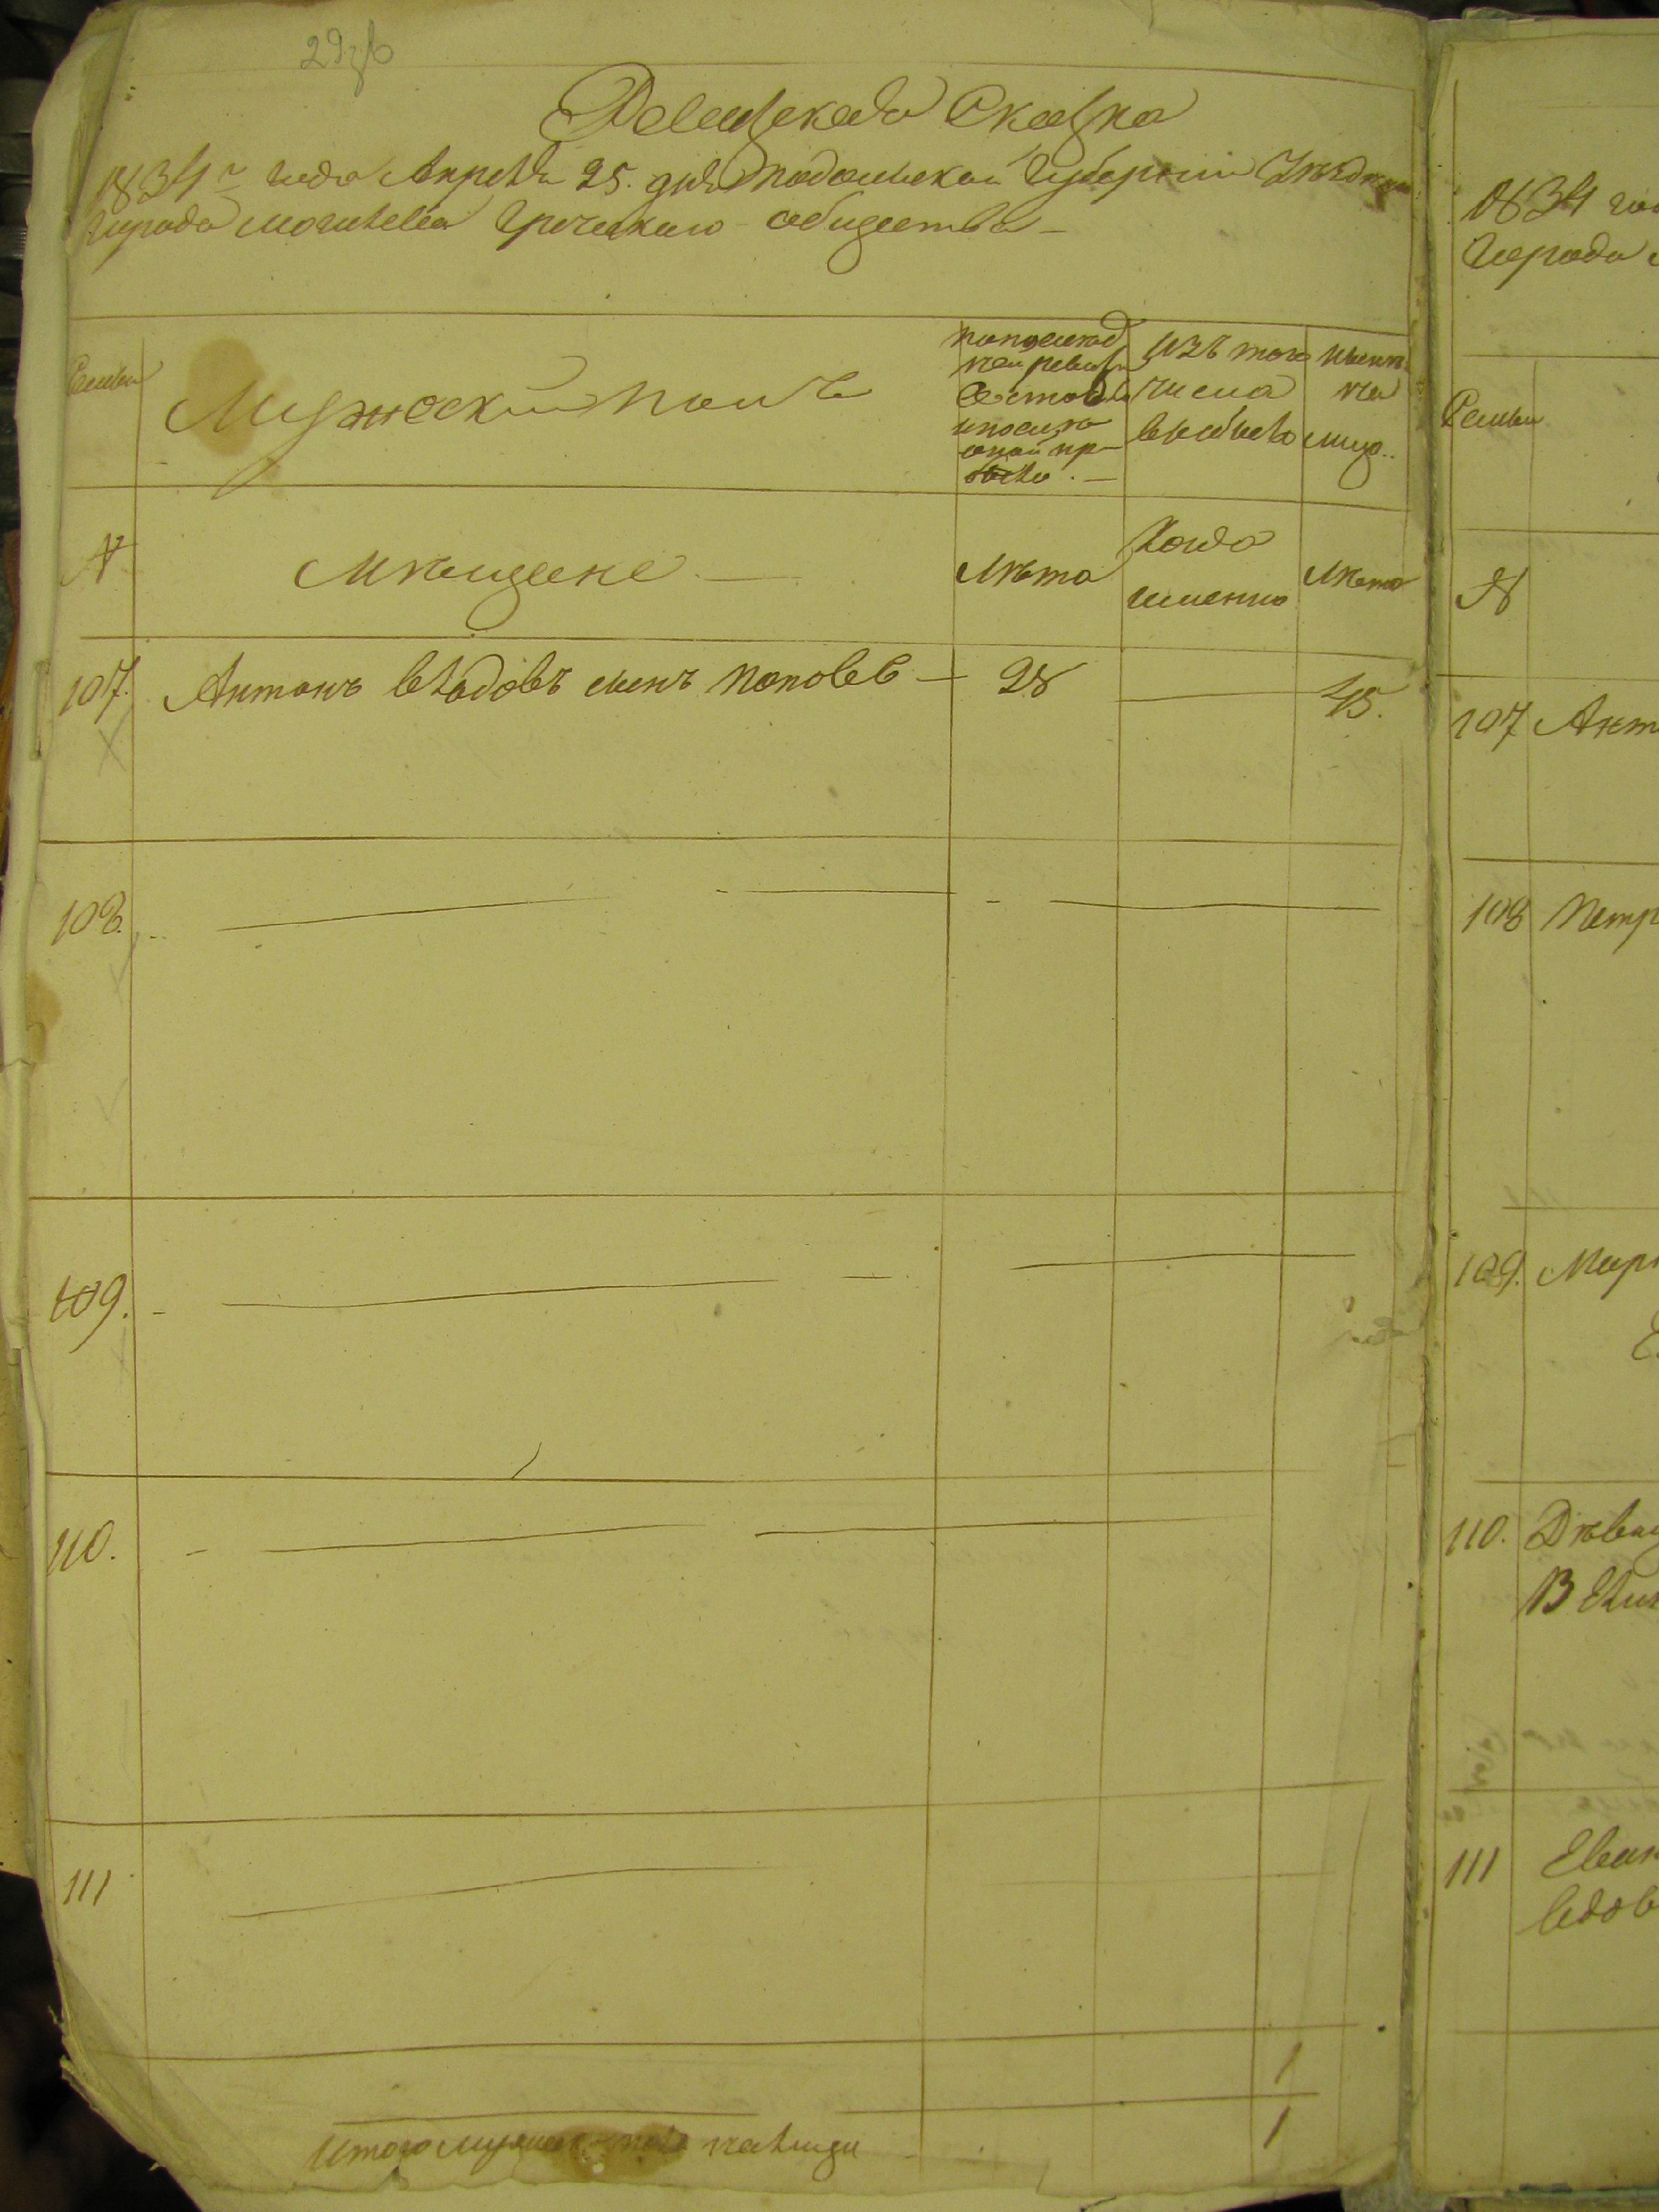 Ревизская Сказка
1834го года Апреля 25. дня Подольской Губернии Уездного
города Могилева Греческаго общества
Семьи
Мужеский полъ
По последней ревизии состояло и после оной прибыло
Изъ того числа выбыло
Ныне на лицо
№
Мѣщане
Лѣта
Когда именно
Лѣта
107. Антонъ Владовъ сынъ Поповъ 28 — 45.
108.
109.
110.
111
1
Итого мужеска пола на лице 1
1834
Города
Семьи
№
107
108
109.
110.
111